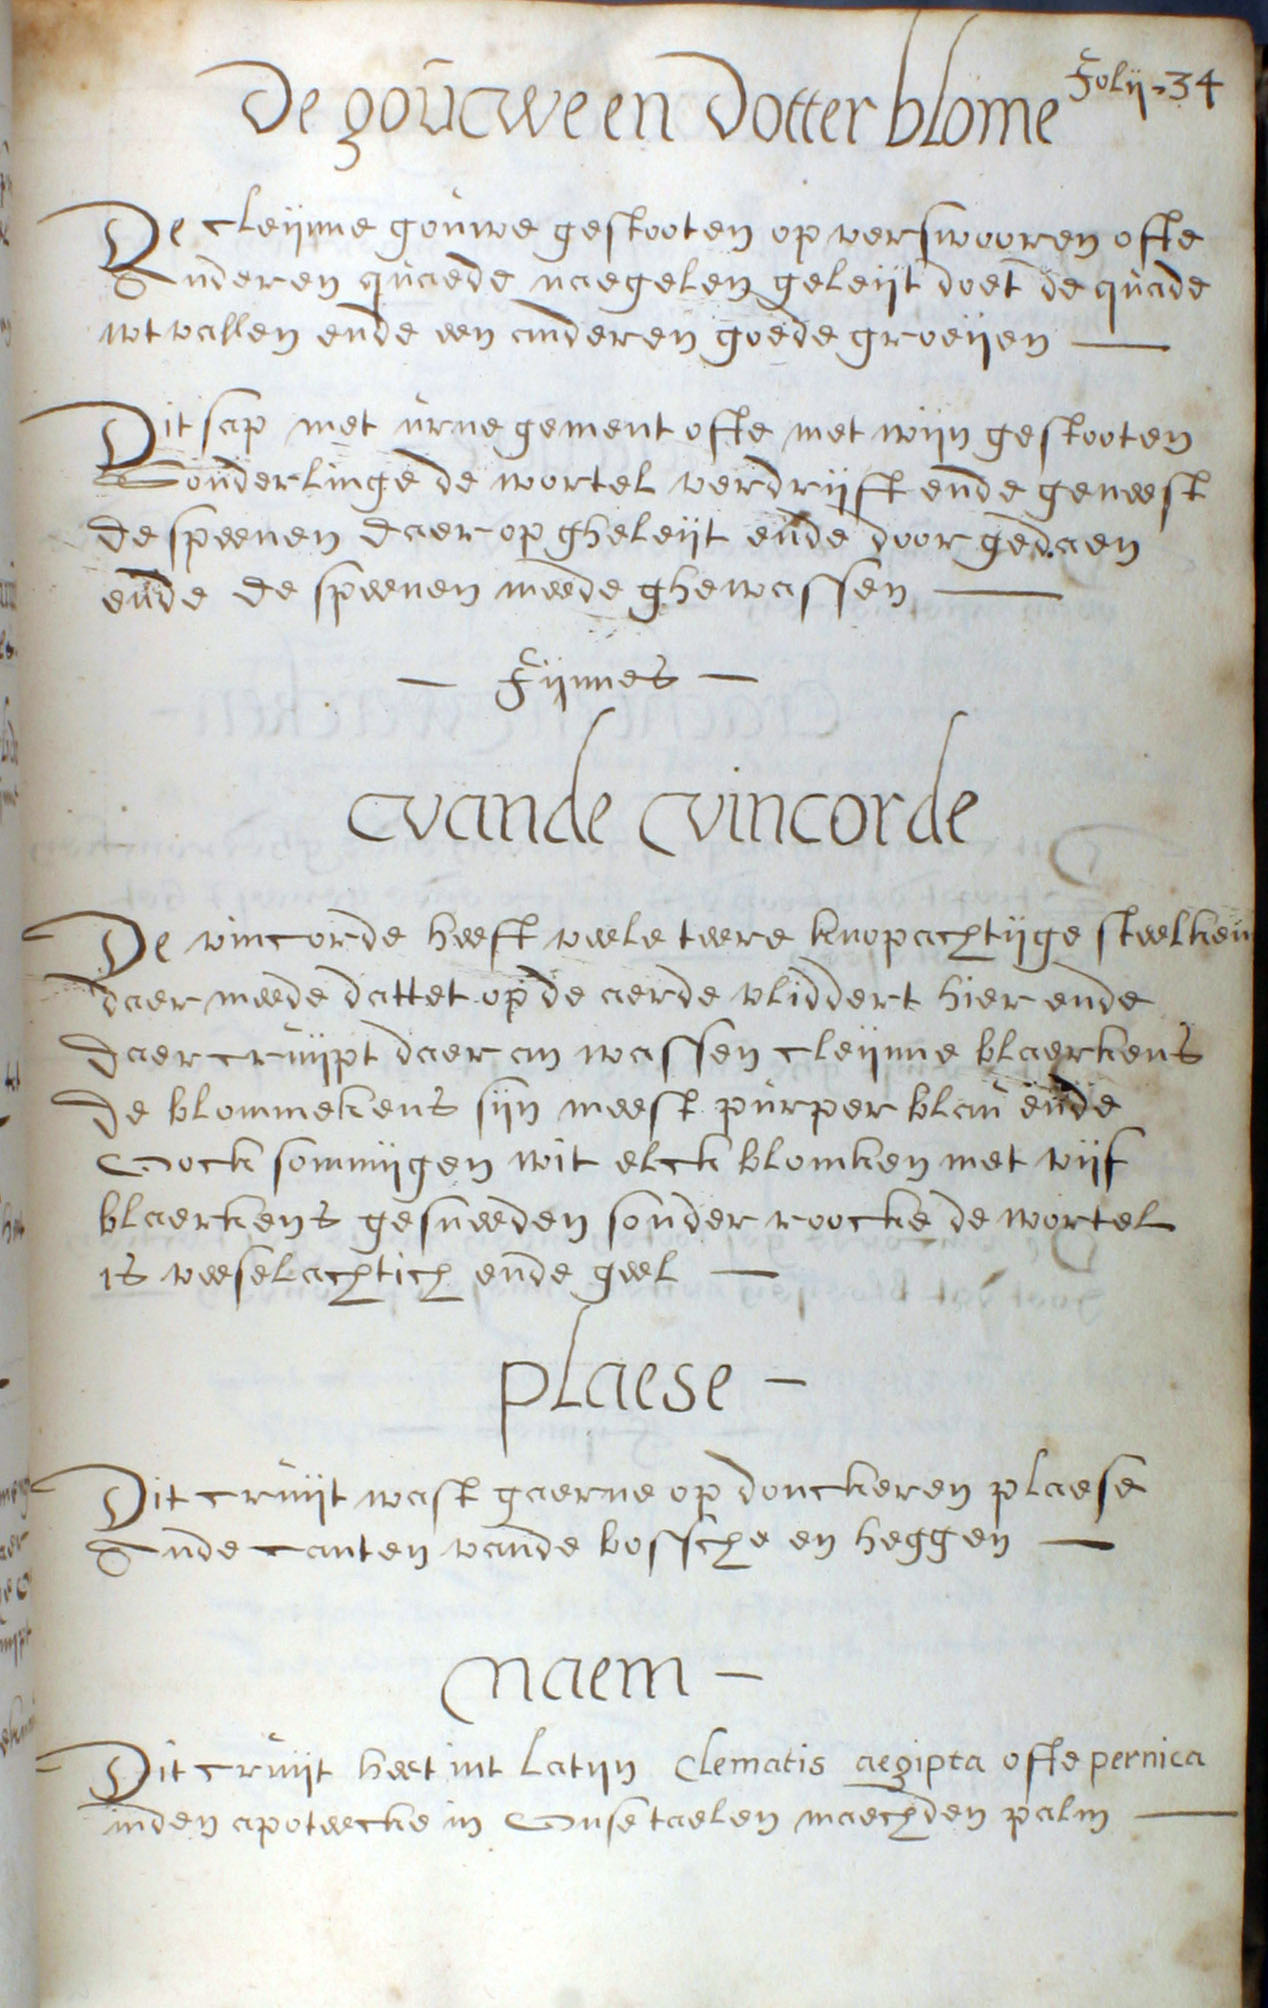 Folij.34
De gouwe en dotter blome
De cleijnne gouwe gestooten op verswooren ofte
Anderen quaede naegelen geleijt doet de quade
wtvallen ende een anderen goede groeijen
Dit sap met urne gement ofte met wijn gestooten
Sonderlinge de wortel verdrijft ende geneest
de speenen daer op gheleijt ende door gedaen
ende de speenen meede ghewassen
Fijnnes
vande vincorde
De vincorde heeft veele teere knopachtijge steelken
daer meede dattet op de aerde vliddert hier ende
daer cruijpt daer an wassen cleijnne blaerkens
de blommekens sijn meest purper blau ende
Oock sommijgen wit elck blomken met vijf
blaerkens gesneeden sonder roocke de wortel
is veeselachtich ende geel
plaese
Dit cruijt wast gaerne op donckeren plaese
Ande canten vande bossche en heggen
Naem
Dit cruijt heet int latijn Clematis aegipta ofte pernica
inden apoteecke in Onse taelen maechden palm